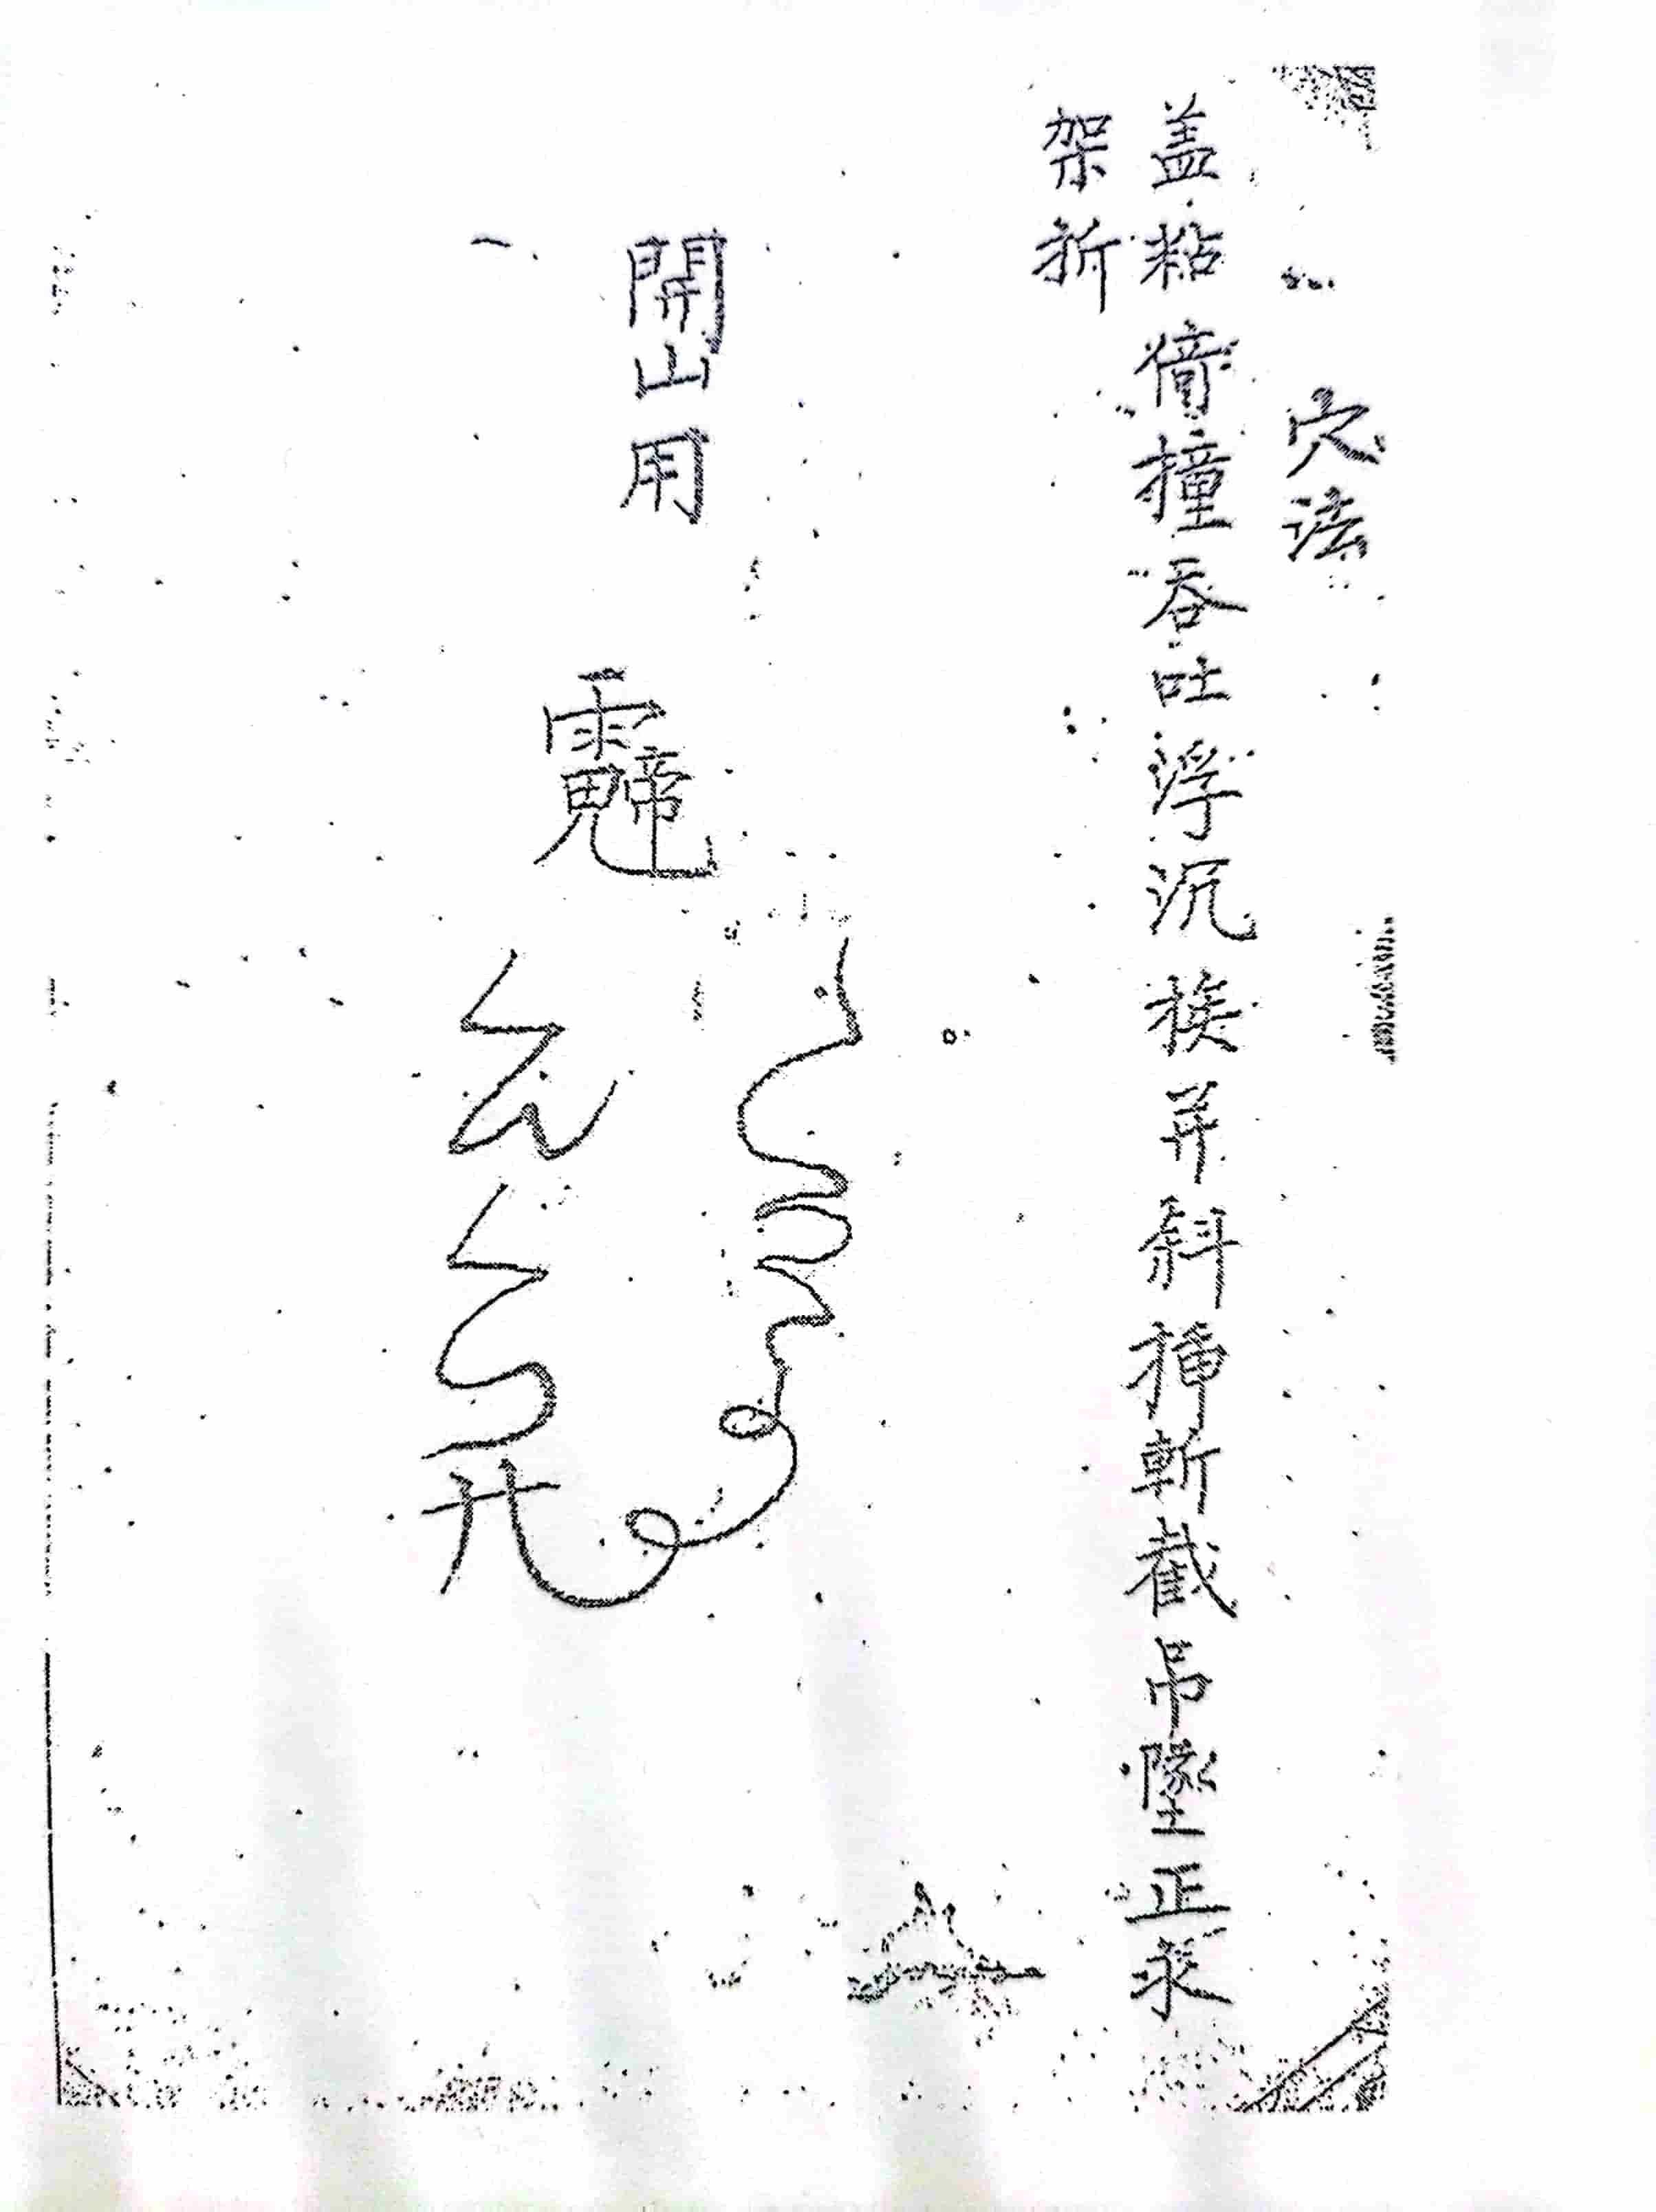 穴法
盖粘倚撞吞吐浮沉挨并斜插斬截吊墜正求
架折
開山用